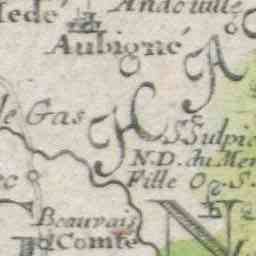 Andouillé
Aubigné
le Gas
H A
S Sulpic
N.D. du Mer
Fille
Beauvais
Comte
N